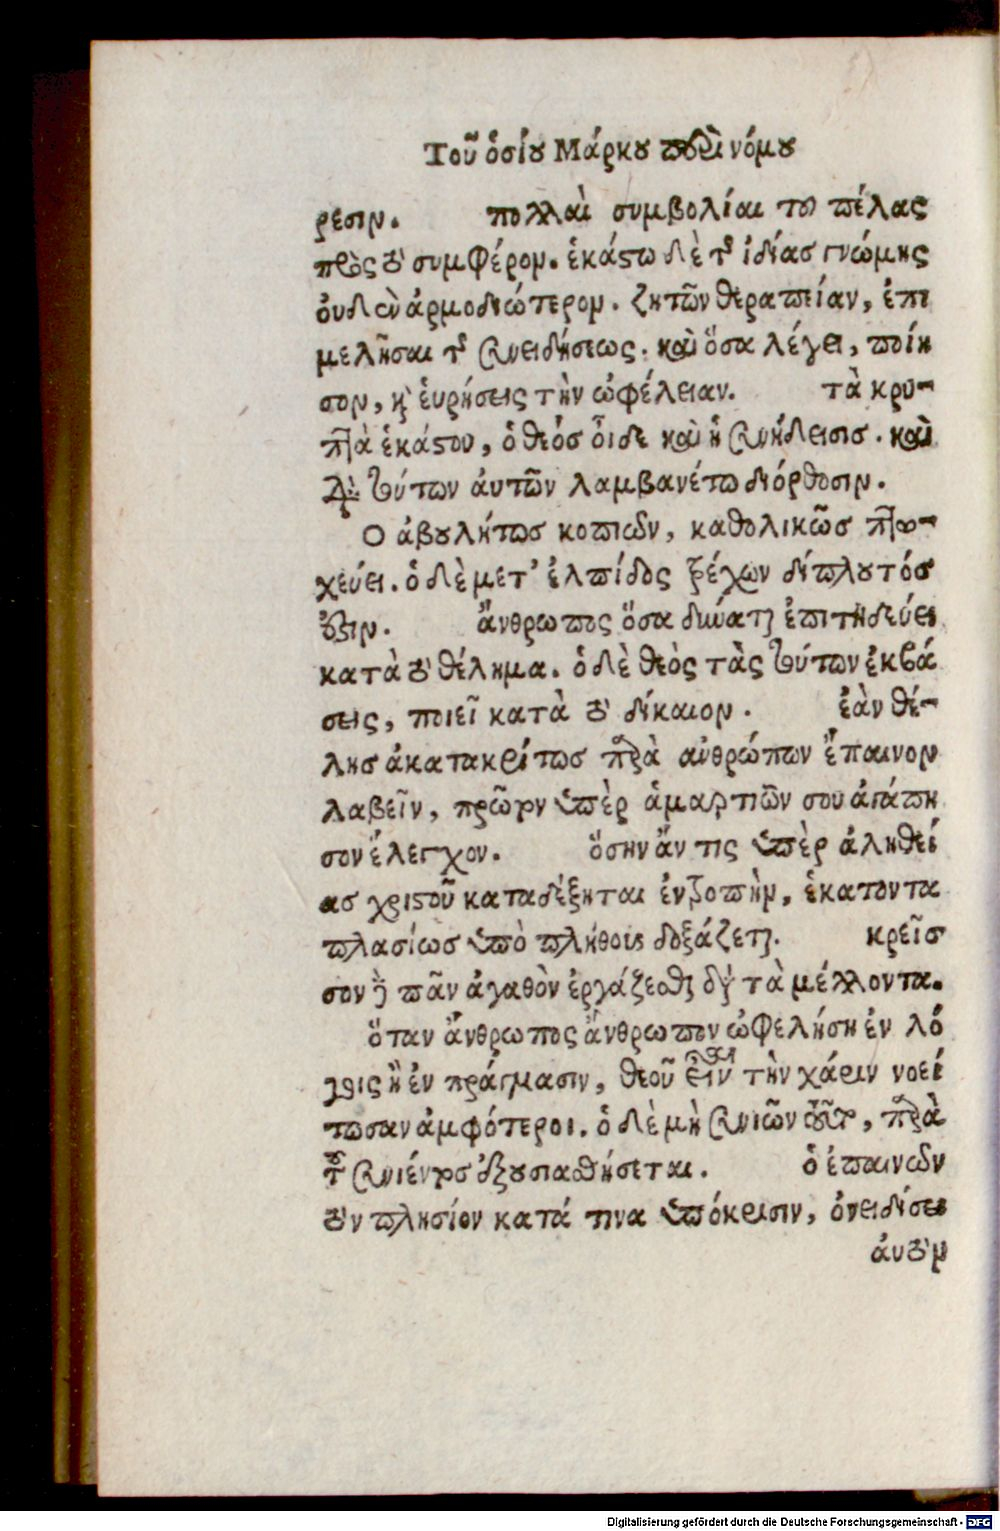 Τοῦ ὁσίου Μάρκου περὶ νόμου
ρεσιν. πολλαὶ συμβολίαι τοῦ πέλας
πρὸς τὸ συμφέρον. ἑκάστω δὲ τῆς ἰδίας γνώμης
ὀυδὲν ἁρμοδιώτερον. ζητῶν θεραπείαν, ἐπι
μελῆσαι τῆς συνειδήσεως. καὶ ὅσα λέγει, ποίη
σον, καὶ ἑυρήσεις τὴν ὠφέλειαν. τὰ κρυ-
πτὰ ἑκάστου, ὁ θεὸσ οἶδε καὶ ἡ συνήδεισισ. καὶ
διὰ τούτων ἀυτῶν λαμβανέτω διόρθοσιν.
Ο ἀβουλήτωσ κοπιῶν, καθολικῶσ πτω-
χεύει. ὁ δὲ μετ' ἐλπίδος τρέχων δίπλουτόσ
ἐστιν. ἄνθρωπος ὅσα δύναται ἐπιτηδεύει
κατὰ τὸ θέλημα. ὁ δὲ θεὸς τὰς τούτων ἐκβά
σεις, ποιεῖ κατὰ τὸ δίκαιον. ἐὰν θέ-
λησ ἀκατακρίτωσ παρὰ ανθρώπων ἔπαινον
λαβεῖν, πρῶτον ὑπὲρ ἁμαρτιῶν σου ἀγάπη
σον ἔλεγχον. ὅσην ἄν τις ὑπὲρ ἀληθεί
ασ χριστοῦ καταδέξηται ἐντροπὴν, ἑκατοντα
πλασίωσ ὑπὸ πλήθους δοξάζεται. κρεῖσ
σον ἢ πᾶν ἀγαθὸν ἐργάζεσθαι διὰ τὰ μέλλοντα.
ὅταν ἄνθρωπος ἄνθρωπον ὠφελήση ἐν λό
γοις ἢ ἐν πράγμασιν, θεοῦ εἶναι τὴν χάριν νοεί
τωσαν ἀμφότεροι. ὁ δὲ μὴ συνιῶν τοῦτο, παρὰ
τοῦ συνιέντοσ ἐξουσιασθήσεται. ὁ ἐπαινῶν
τὸν πλησίον κατά τινα ὑπόκρισιν, ὀνειδίσει
ἀυτὸν